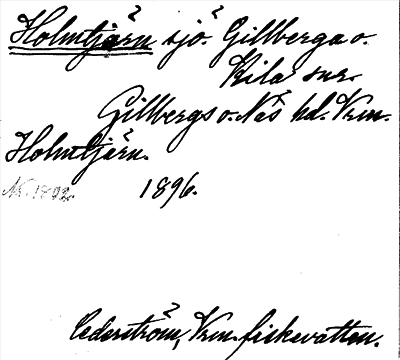 Holmtjärn sjö. Gillberga o.
Kila snr.
Gillbergs o. Näs hd. Vrm.
Holmtjärn.
Nr. 1892. 1896.
Cederström, Vrm. fiskevatten.